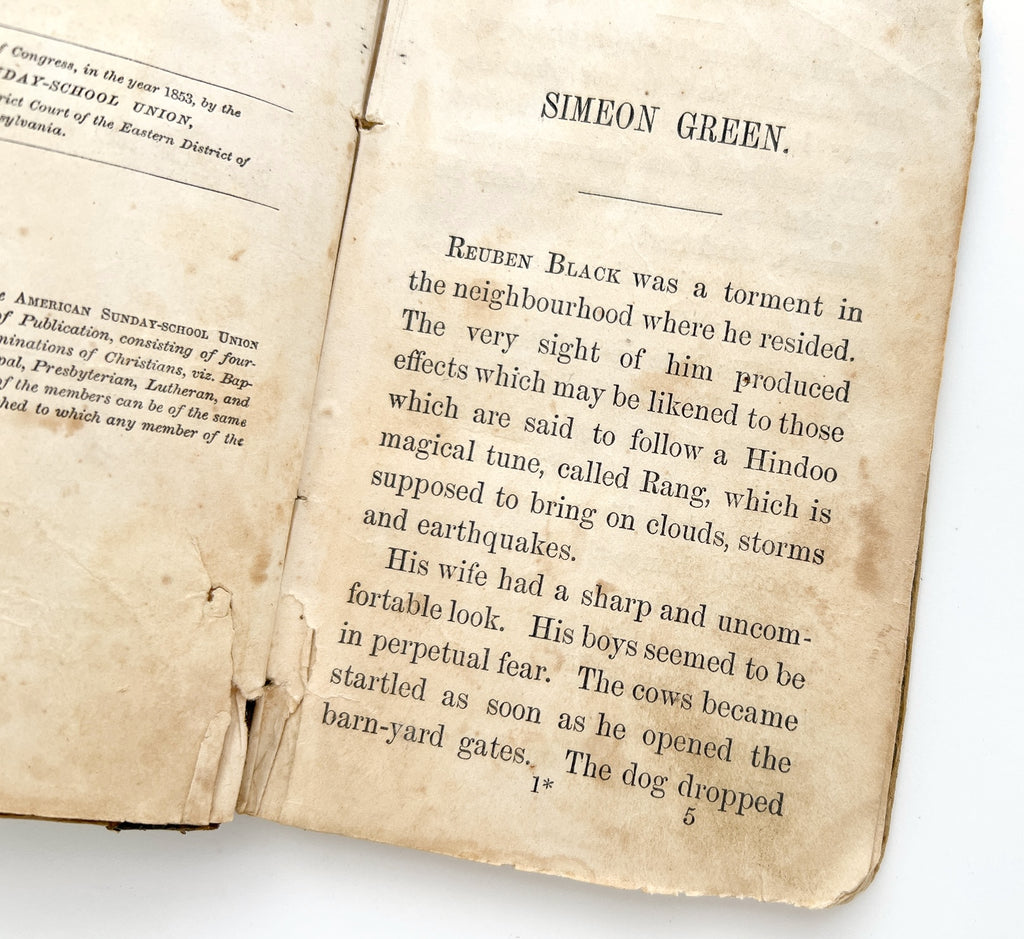 f Congress, in the year 1853, by the
DAY-SCHOOL UNION,
rict Court of the Eastern District of
sylvania.
e AMERICAN SUNDAY-SCHOOL UNION
of Publication, consisting of four-
minations of Christians, viz. Bap-
pal, Presbyterian, Lutheran, and
of the members can be of the same
shed to which any member of the
SIMEON GREEN.
REUBEN BLACK was a torment in
the neighbourhood where he resided.
The very sight of him produced
effects which may be likened to those
which are said to follow a Hindoo
magical tune, called Rang, which is
supposed to bring on clouds, storms
and earthquakes.
His wife had a sharp and uncom-
fortable look. His boys seemed to be
in perpetual fear. The cows became
startled as soon as he opened the
barn-yard gates. The dog dropped
1*
5